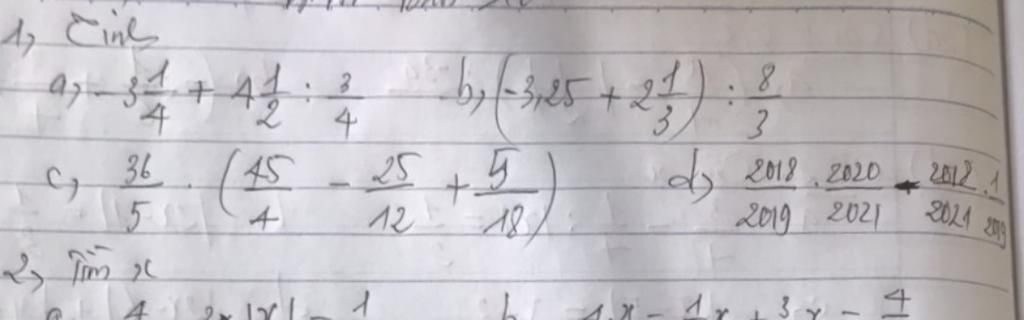 1, Tính
a, -3 1/4 + 4 1/2 : 3/4 b, (-3,25 + 2 1/3) : 8/3
c, 36/5 . (45/4 - 25/12 + 5/18) d, 2018/2019 . 2020/2021 - 2018/2021 . 1/2019
2, Tìm x